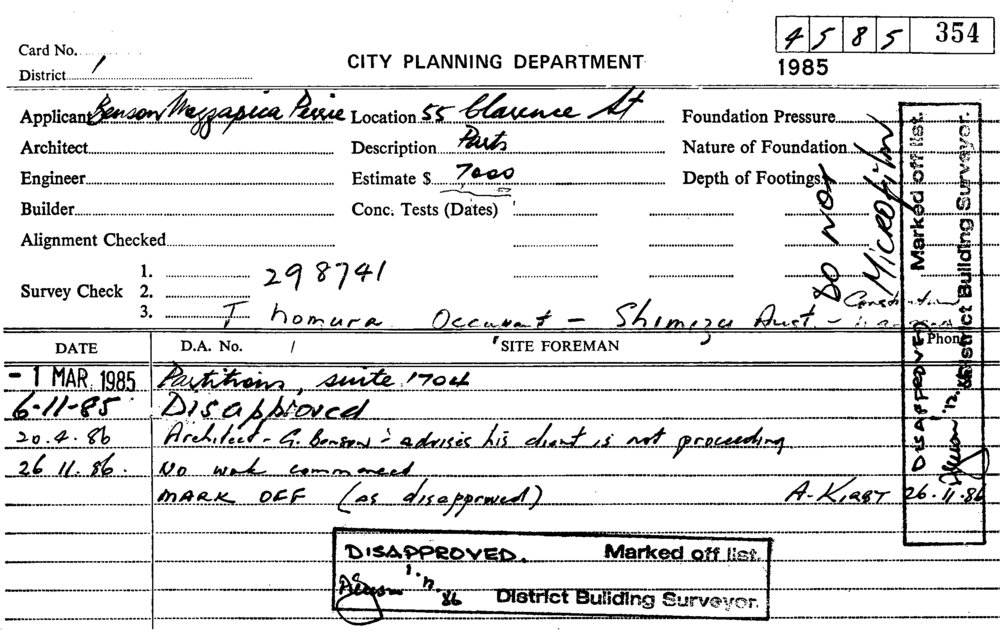 4 5 8 5 354
Card No.
CITY PLANNING DEPARTMENT
1985
District 1
Applicant Benson Mazzapica Peirie Location 55 Clarence St Foundation Pressure
Architect Description Parts Nature of Foundation
Engineer Estimate $ 7000 Depth of Footings
Builder Conc. Tests (Dates)
Alignment Checked
DO NOT
MICROFILM
Survey Check 1. 2. 3.
298741
T Nomura Occupant - Shimizu Aust. - Construction
DATE D.A. No. / SITE FOREMAN Phone
- 1 MAR 1985 Partitions, suite 1704
6-11-85 Disapproved
20.4.86 Architect - G. Benson - advises his client is not proceeding
26 11.86. No work commenced
MARK OFF (as disapproved) A. KIRBY 26.11.86
DISAPPROVED Marked off list.
1.12.86 District Building Surveyor.
DISAPPROVED. Marked off list.
1.12.86 District Building Surveyor.